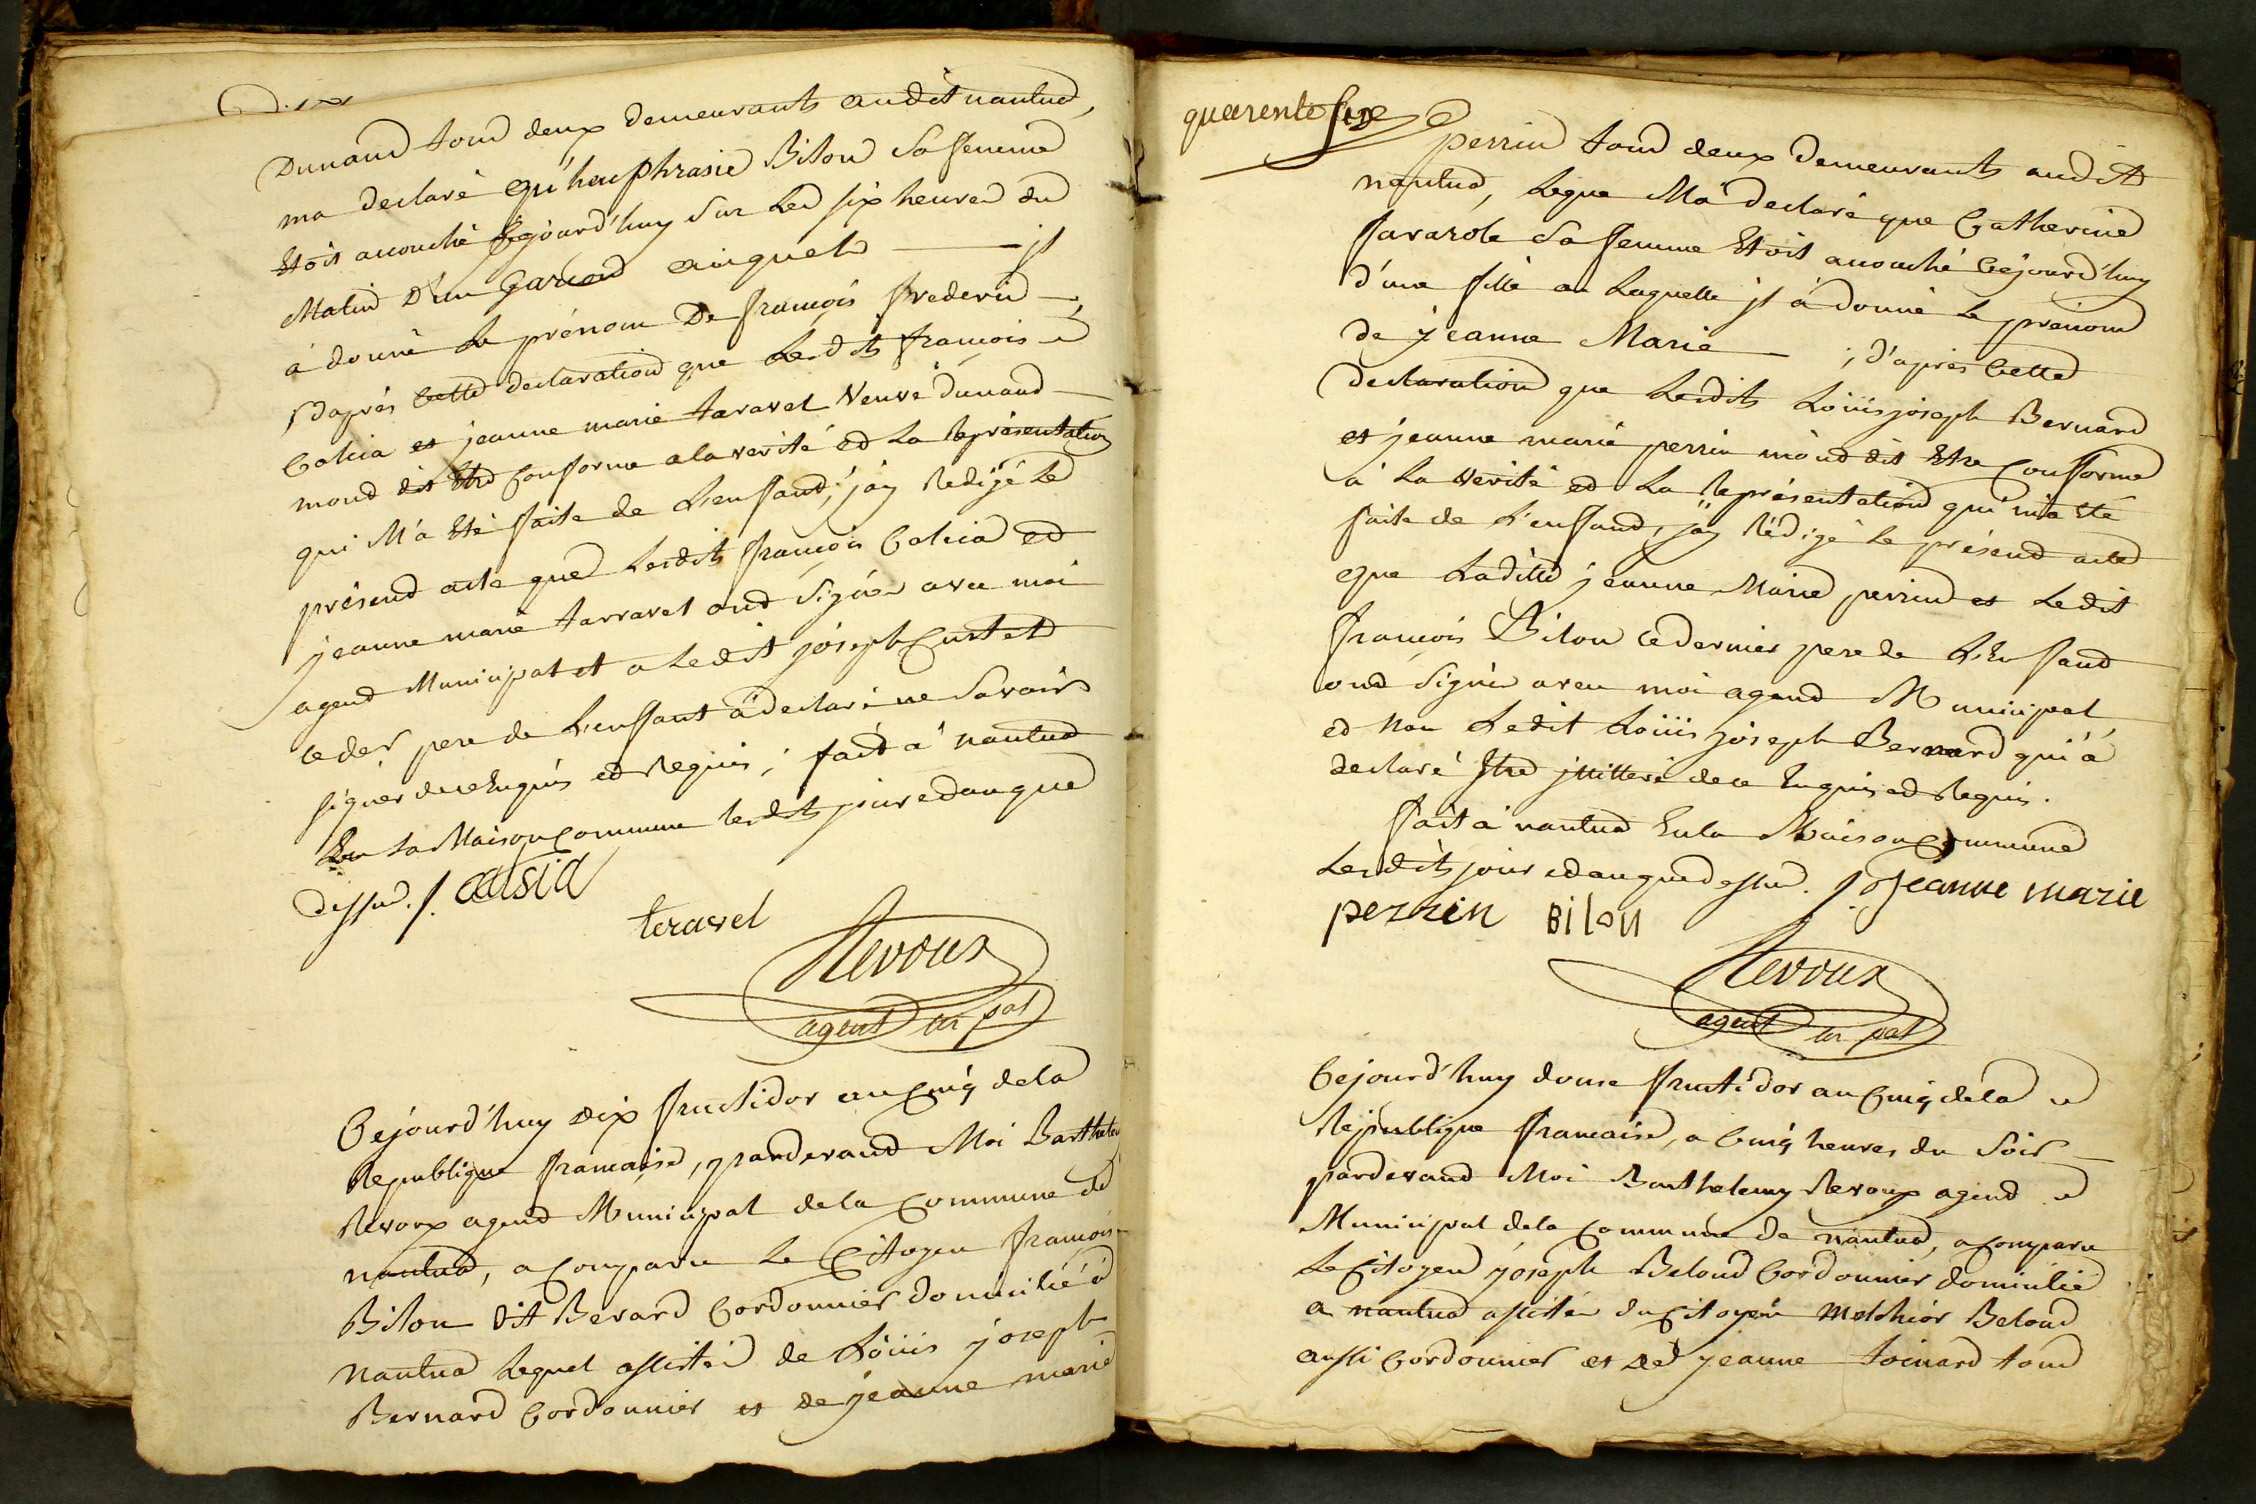 Dunand tous deux demeurants audit nantua,
ma declaré qu'heuphrasie Bilon sa femme
Etoit accouché Cejourd'huy sur Les six heures du
Matin D'un Garcon auquel il
à donné Le prénom De françois frederic
; Daprès Cette declaration que Lesdits françois
et jeanne marie taravel Veuve dunand
mont dit Etre Conforme a la verité et La représentation
qui M'a Eté faite de L'enfant, j'ay Redigé Le
présent acte que Lesdits françois et
jeanne marie tarravel ont Signés avec moi
agent Municipal et a Ledit joseph Curtet
ce der pere de L'enfant a declaré ne Savoir
signer de ce Enquis et Requis; fait à nantua
En La Maison Commune lesdits jour et an que
dessus. f. Calsia
teravel
Revoux
agent m pal
Cejourd'huy dix fructidor an Cinq de la
Republique francaise, pardevant Moi Barthelemy
Revoux agent Municipal de la Commune de
nantua, a Comparu Le Citoyen francois
Bilon dit Berard Cordonnier domicilié à
Nantua Lequel assisté de Loüis joseph
Bernard Cordonnier et de jeanne marie
quarente six
perrin tous deux demeurants audit
nantua, Leque M'a declaré que Catherine
favarole sa femme Etoit accouché Cejourd'huy
d'une fille a Laquelle il à donné Le prénom
de jeanne Marie ; d'après Cette
declaration que Lesdits Loüis joseph Bernard
et jeanne marie perrin m'ont dit Etre Conforme
à La Verité et La Représentation qui m'a Eté
faite de L'enfant, j'ay Rédigé Le présent acte
que Ladite jeanne Marie perrin et Ledit
françois Bilon ce dernier pere de L'Enfant
ont Signés avec moi agent Municipal
et non Ledit Loüis joseph Bernard qui à
declaré Etre jllitteré de ce Enquis et Requis.
fait à nantua En la Maison Commune
Lesdits jour et an que dessus. Jeanne marie
perrin Bilon
Revoux
agent m pal
Cejourd'huy douze fructidor an Cinq de la
Republique francaise, a Cinq heures du Soir
pardevant Moi Barthelemy Revoux agent
Municipal de la Commune de nantua, a Comparu
Le Citoyen joseph Beloud Cordonnier domicilié
a nantua assisté du Citoyen Melchior Beloud
aussi Cordonnier et de jeanne Toinard tous